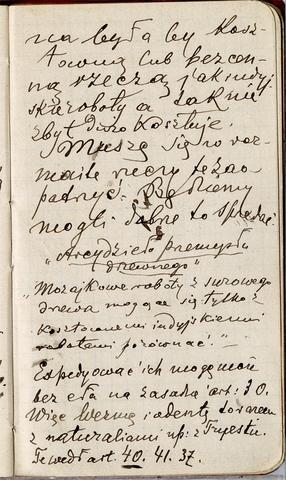 na była by kosz-
towną lub bezcen-
ną rzeczą jak indyj-
skie roboty a tak nie
zbyt dużo kosztuje.
Muszę się w roz-
maite rzeczy też zao-
patrzyć. Będziemy
mogli dobrze to sprzedać
"Arcydzieło przemysłu
drzewnego"
"Mozajkowe roboty z surowego
drzewa mogące się tylko z
kosztownemi indyjskiemi
robotami porównać."
Expedyować ich mogę moń
bez cła na zasadzie art: 30.
Więc wezmę i adenty do razem
z naturaliami np: z Tryestu.
Tewedł art. 40. 41. 37.